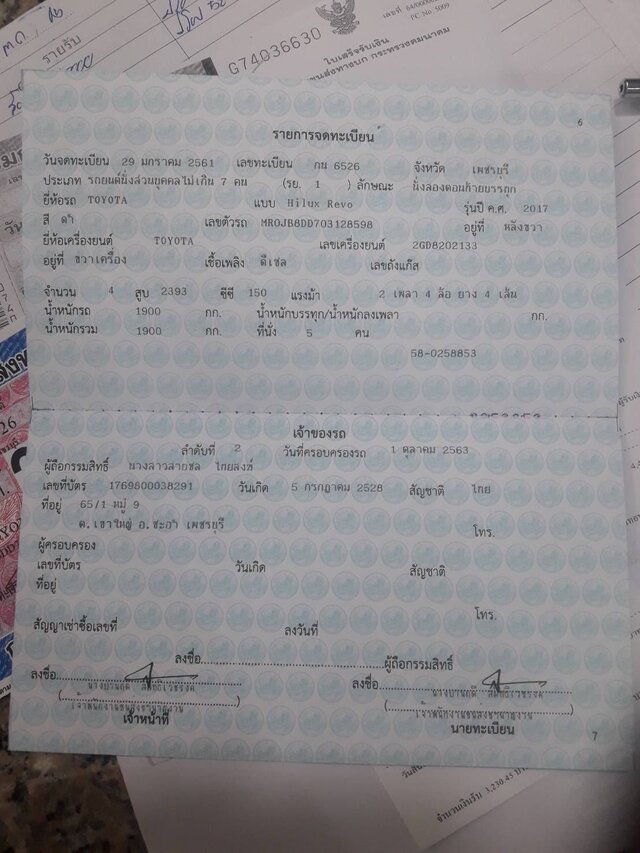 รายรับ
G74036630
เลขที่
PC No 5009
ใบเสร็จรับเงิน
กระทรวงคมนาคม
6
รายการจดทะเบียน
วันจดทะเบียน 29 มกราคม 2561 เลขทะเบียน กน 6526 จังหวัด เพชรบุรี
ประเภท รถยนต์นั่งส่วนบุคคลไม่เกิน 7 คน (รย. 1 ) ลักษณะ นั่งสองตอนท้ายบรรทุก
ยี่ห้อรถ TOYOTA แบบ Hilux Revo รุ่นปี ค.ศ. 2017
สี ดำ เลขตัวรถ MR0JB8DD703128598 อยู่ที่ หลังขวา
ยี่ห้อเครื่องยนต์ TOYOTA เลขเครื่องยนต์ 2GD8202133
อยู่ที่ ขวาเครื่อง เชื้อเพลิง ดีเซล เลขถังแก๊ส
จำนวน 4 สูบ 2393 ซีซี 150 แรงม้า 2 เพลา 4 ล้อ ยาง 4 เส้น
น้ำหนักรถ 1900 กก. น้ำหนักบรรทุก/น้ำหนักลงเพลา กก.
น้ำหนักรวม 1900 กก. ที่นั่ง 5 คน
58-0258853
เจ้าของรถ
ลำดับที่ 2 วันที่ครอบครองรถ 1 ตุลาคม 2563
ผู้ถือกรรมสิทธิ์ นางสาวสายชล ไทยสงฆ์
เลขที่บัตร 1769800038291 วันเกิด 5 กรกฎาคม 2528 สัญชาติ ไทย
ที่อยู่ 65/1 หมู่ 9
ต.เขาใหญ่ อ.ชะอำ เพชรบุรี โทร.
ผู้ครอบครอง
เลขที่บัตร วันเกิด สัญชาติ
ที่อยู่
โทร.
สัญญาเช่าซื้อเลขที่ ลงวันที่
ลงชื่อ ผู้ถือกรรมสิทธิ์
ลงชื่อ ลงชื่อ
เจ้าหน้าที่ นายทะเบียน
7
จำนวนเงินรับ 3,230.45